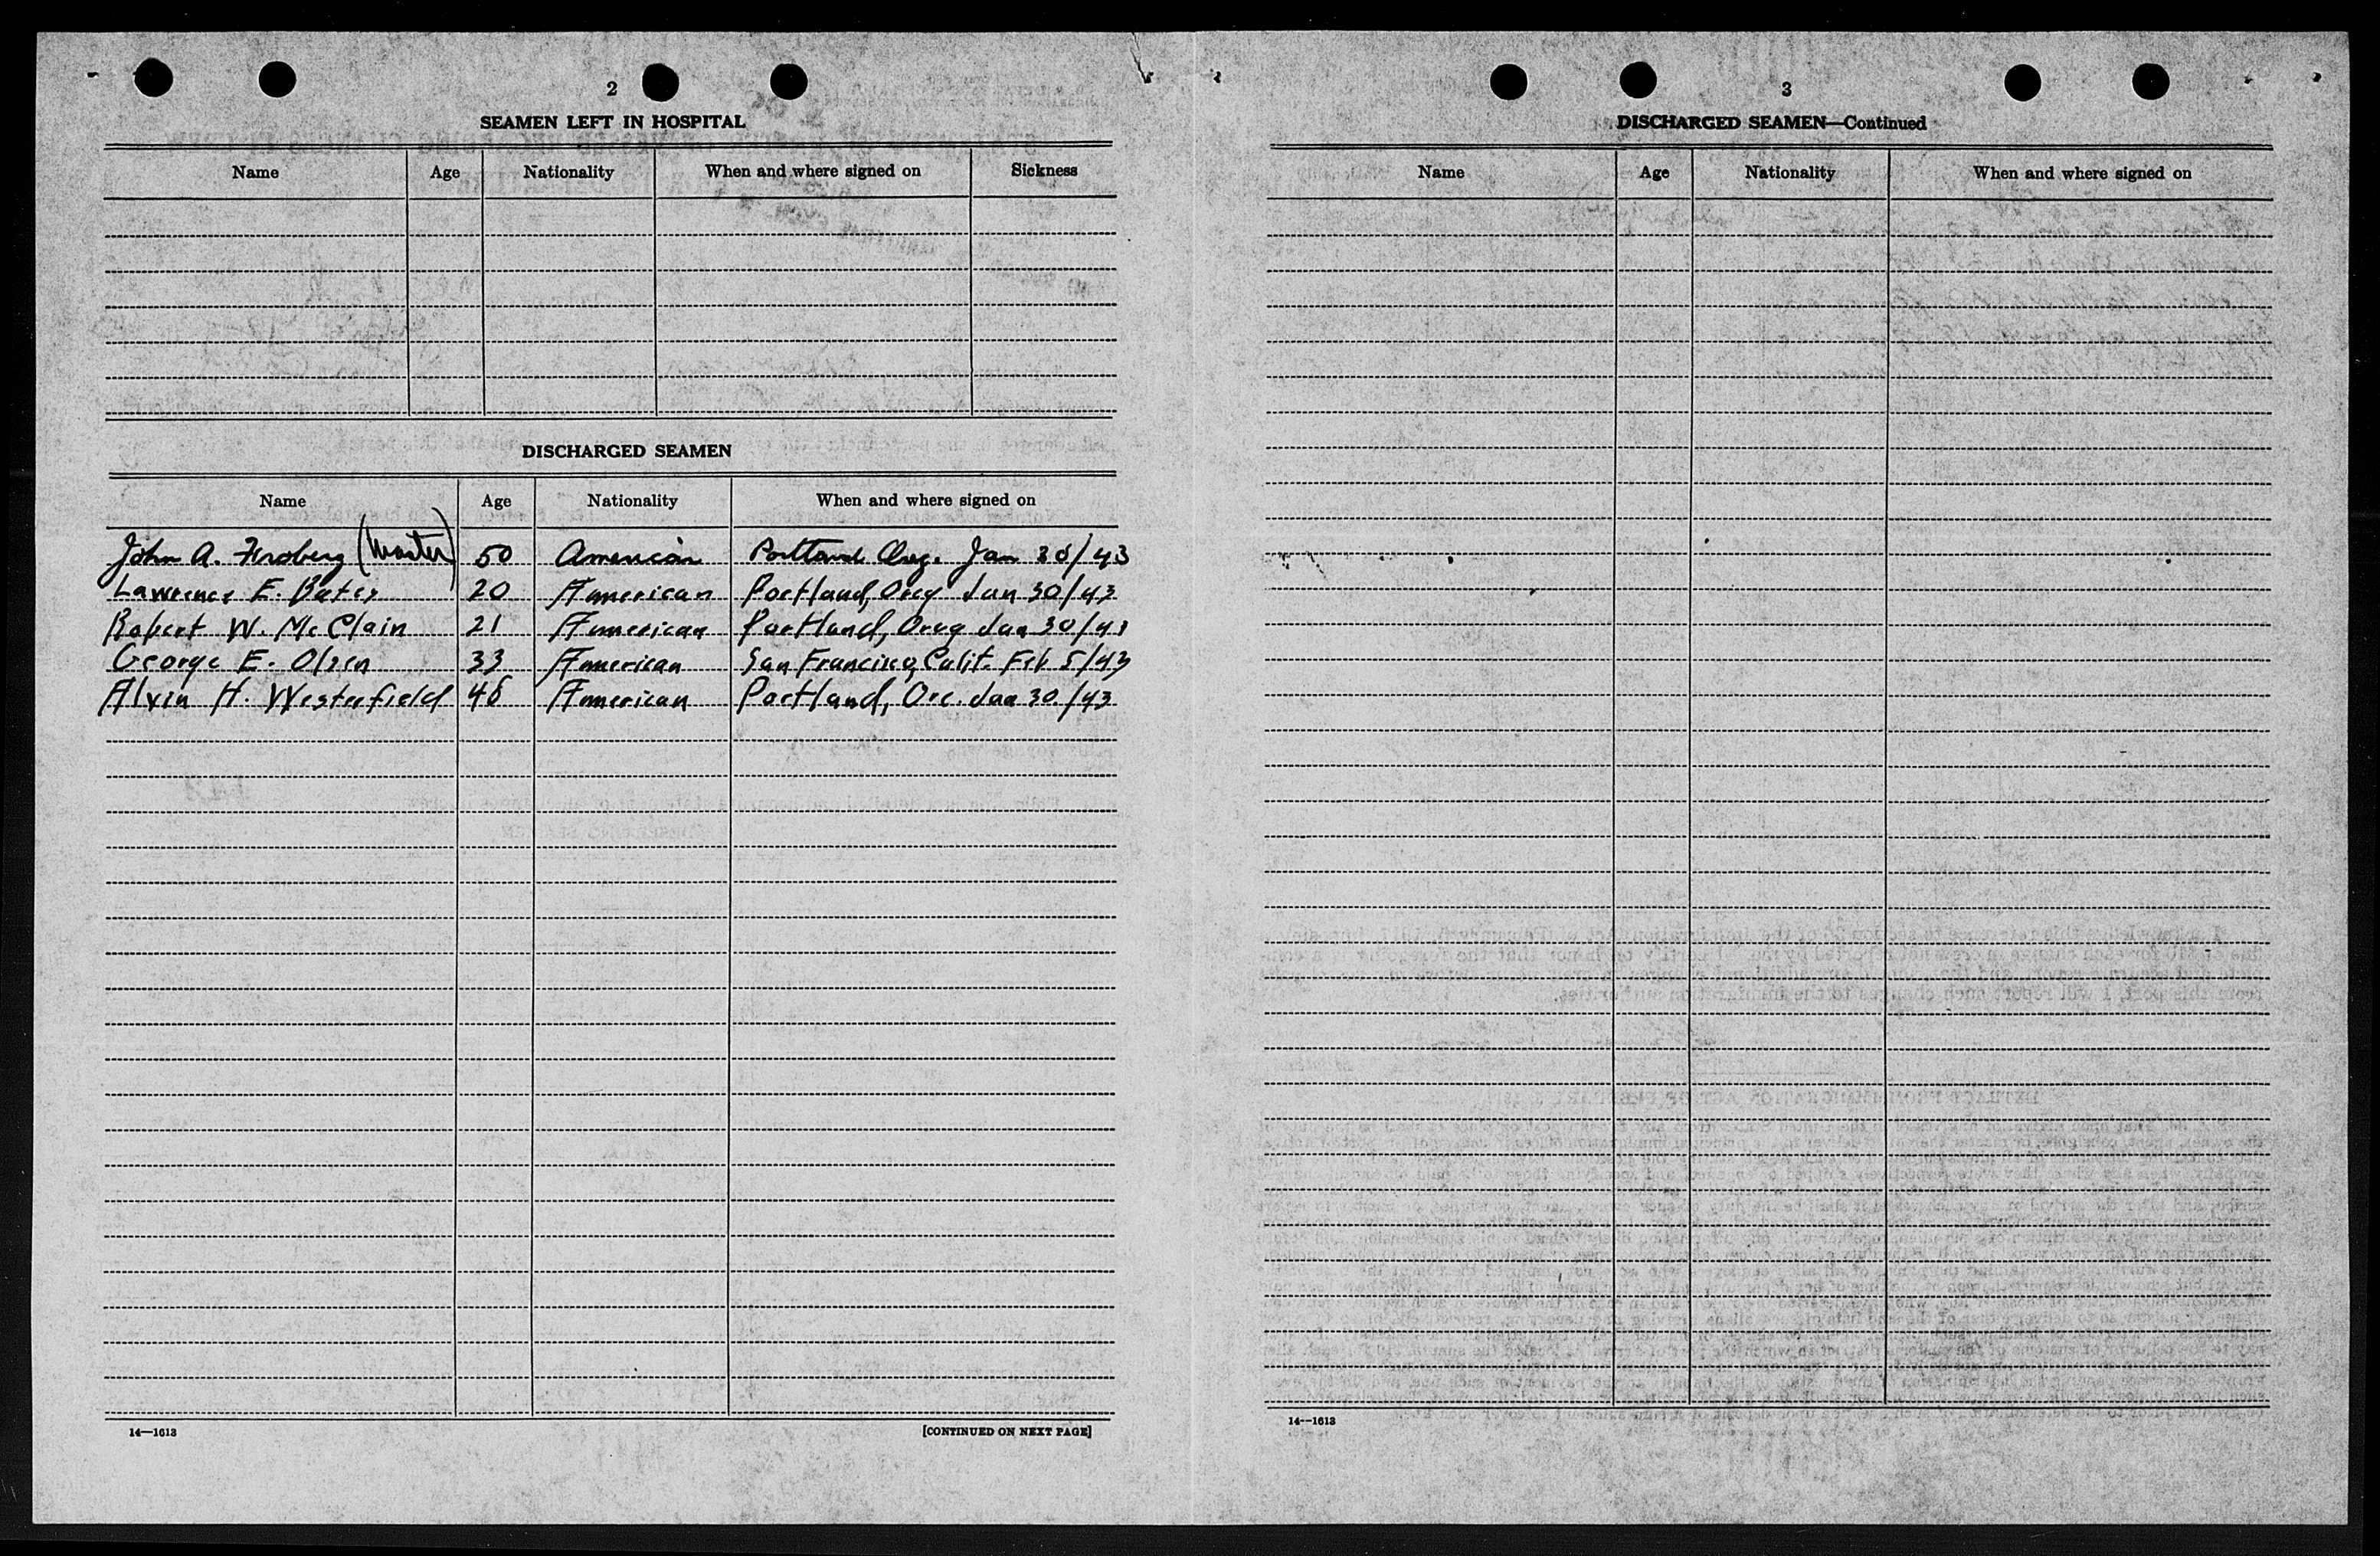 2
SEAMEN LEFT IN HOSPITAL
Name Age Nationality When and where signed on Sickness
DISCHARGED SEAMEN
Name Age Nationality When and where signed on
John A. (Master) 50 American Portland Oreg. Jan 30/43
Lawrence E. 20 American Portland, Oreg Jan 30/43
Robert W. McClain 21 American Portland, Oreg Jan 30/43
George E. Olsen 33 American San Francisco, Calif. Feb 5/43
Alvin H. Westerfield 48 American Portland, Ore. Jan 30/43
14—1613
[CONTINUED ON NEXT PAGE]
3
DISCHARGED SEAMEN—Continued
Name Age Nationality When and where signed on
14—1613